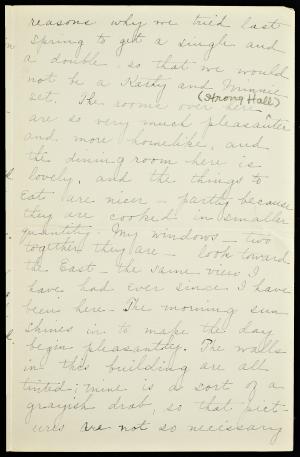 reasons why we tried last
spring to get a single and
a double, so that we would
not be a Kathy and Minnie
set. The rooms over here
(Strong Hall)
are so very much pleasanter
and more homelike, and
the dining room here is
lovely, and the things to
eat are nicer - partly because
they are cooked in smaller
quantity. My windows - two
together they are - look toward
the East - the same view I
have had ever since I have
been here. The morning sun
shines in to make the day
begin pleasantly. The walls
in this building are all
tinted; mine is a sort of a
grayish drab, so that pict-
ures are not so necessary